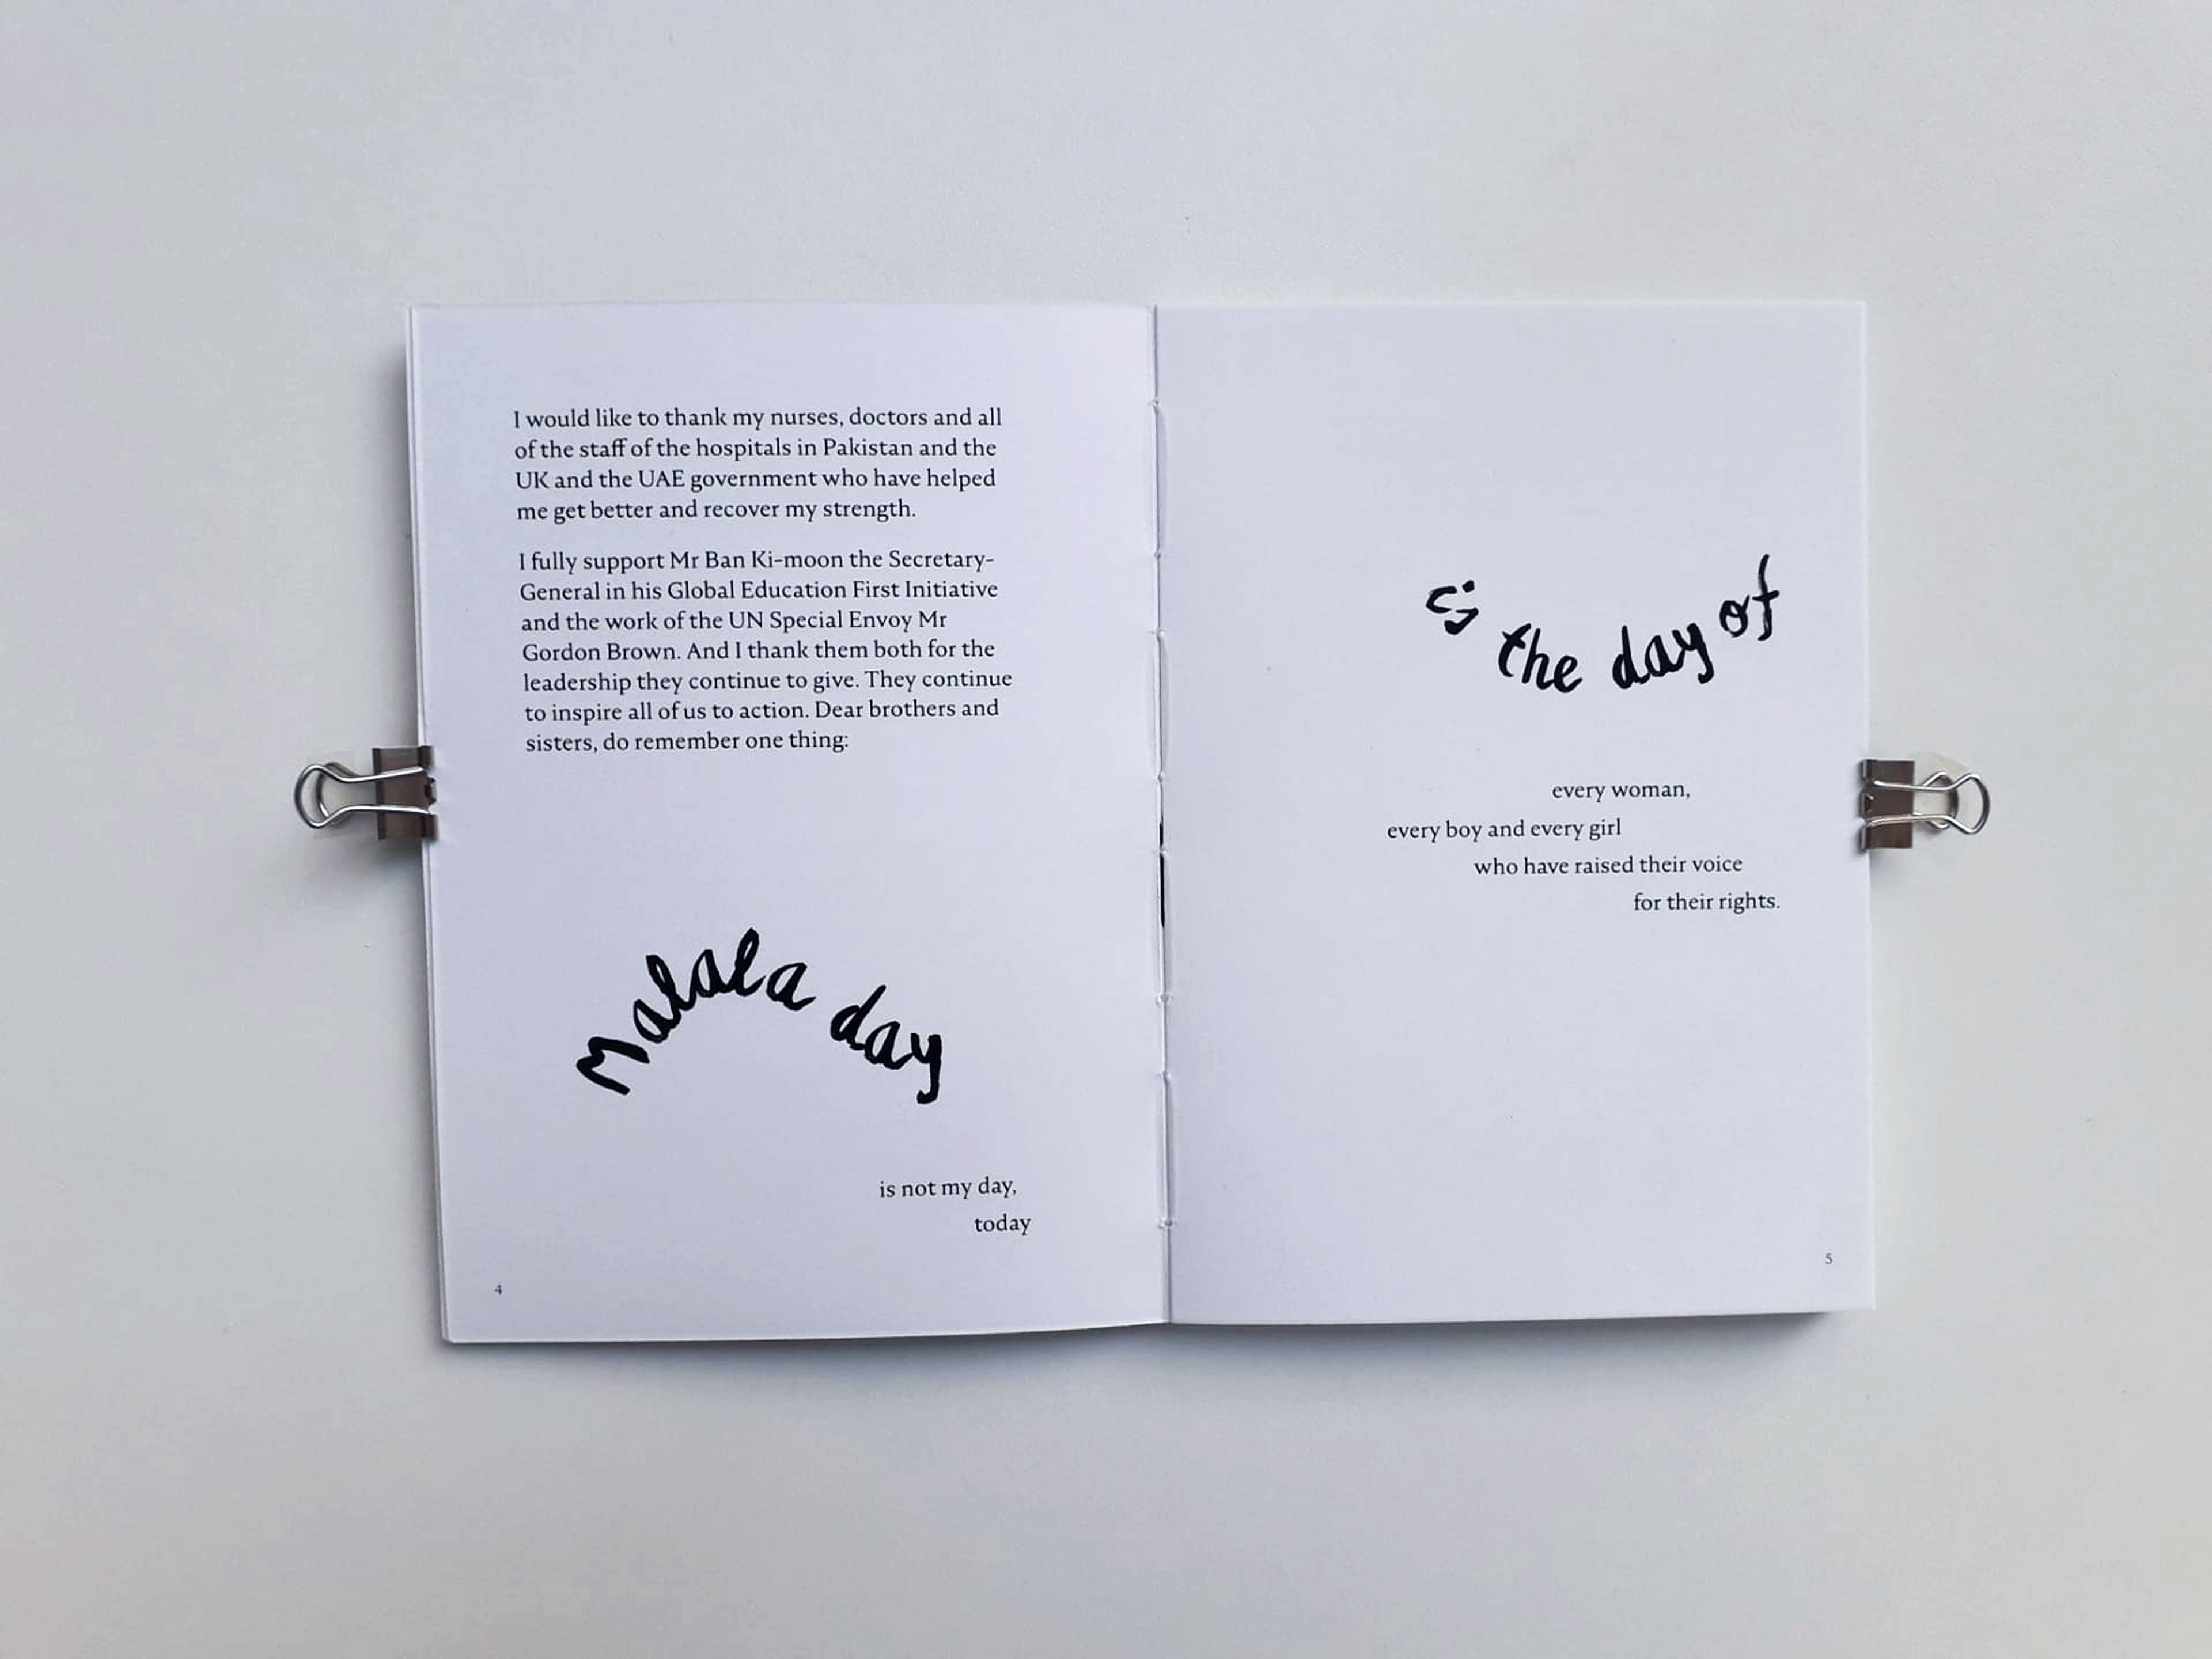 I would like to thank my nurses, doctors and all
of the staff of the hospitals in Pakistan and the
UK and the UAE government who have helped
me get better and recover my strength.
I fully support Mr Ban Ki-moon the Secretary-
General in his Global Education First Initiative
and the work of the UN Special Envoy Mr
Gordon Brown. And I thank them both for the
leadership they continue to give. They continue
to inspire all of us to action. Dear brothers and
sisters, do remember one thing:
Malala day
is not my day,
today
4
is the day of
every woman,
every boy and every girl
who have raised their voice
for their rights.
5